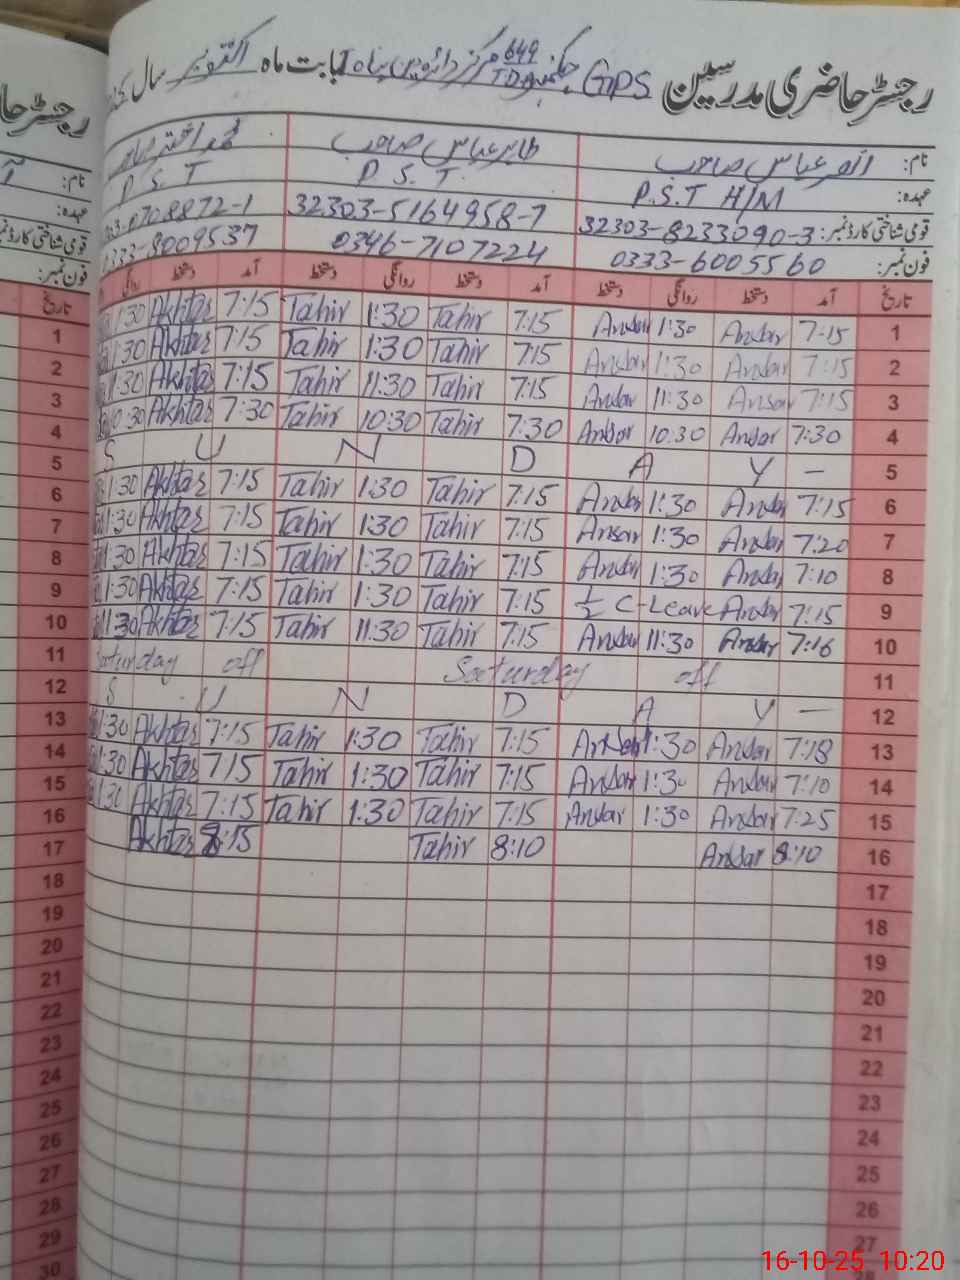 رجسٹر حاضری مدرسین GPS چکنمبر 649 TDA مرکز دائرہ دین پناہ بابت ماہ اکتوبر سال
نام: انصر عباس صاحب طاہر عباس صاحب محمد اختر صاحب
عہدہ: P.S.T H/M P.S.T P.S.T
قومی شناختی کارڈ نمبر: 32303-8233090-3 32303-5164958-7 0708872-1
فون نمبر: 0333-6005560 0346-7107224 0333-8009537
تاریخ آمد دستخط روانگی دستخط آمد دستخط روانگی دستخط آمد دستخط روانگی تاریخ
1 7:15 Ansar 1:30 Ansar 7:15 Tahir 1:30 Tahir 7:15 Akhtar 1:30 1
2 7:15 Ansar 1:30 Ansar 7:15 Tahir 1:30 Tahir 7:15 Akhtar 1:30 2
3 7:15 Ansar 11:30 Ansar 7:15 Tahir 11:30 Tahir 7:15 Akhtar 11:30 3
4 7:30 Ansar 10:30 Ansar 7:30 Tahir 10:30 Tahir 7:30 Akhtar 10:30 4
5 S U N D A Y — 5
6 7:15 Ansar 1:30 Ansar 7:15 Tahir 1:30 Tahir 7:15 Akhtar 1:30 6
7 7:20 Ansar 1:30 Ansar 7:15 Tahir 1:30 Tahir 7:15 Akhtar 1:30 7
8 7:10 Ansar 1:30 Ansar 7:15 Tahir 1:30 Tahir 7:15 Akhtar 1:30 8
9 7:15 Ansar ½ C-Leave 7:15 Tahir 1:30 Tahir 7:15 Akhtar 1:30 9
10 7:16 Ansar 11:30 Ansar 7:15 Tahir 11:30 Tahir 7:15 Akhtar 11:30 10
11 Saturday off Saturday off 11
12 S U N D A Y — 12
13 7:18 Ansar 1:30 Ansar 7:15 Tahir 1:30 Tahir 7:15 Akhtar 1:30 13
14 7:10 Ansar 1:30 Ansar 7:15 Tahir 1:30 Tahir 715 Akhtar 1:30 14
15 7:25 Ansar 1:30 Ansar 7:15 Tahir 1:30 Tahir 7:15 Akhtar 1:30 15
16 8:10 Ansar 8:10 Tahir 8:15 Akhtar 16
17 17
18 18
19 19
20 20
21 21
22 22
23 23
24 24
25 25
26 26
27 27
28
29
30
رجسٹر حا
نام:
عہدہ:
قومی شناختی کارڈ نمبر:
فون نمبر:
16-10-25 10:20